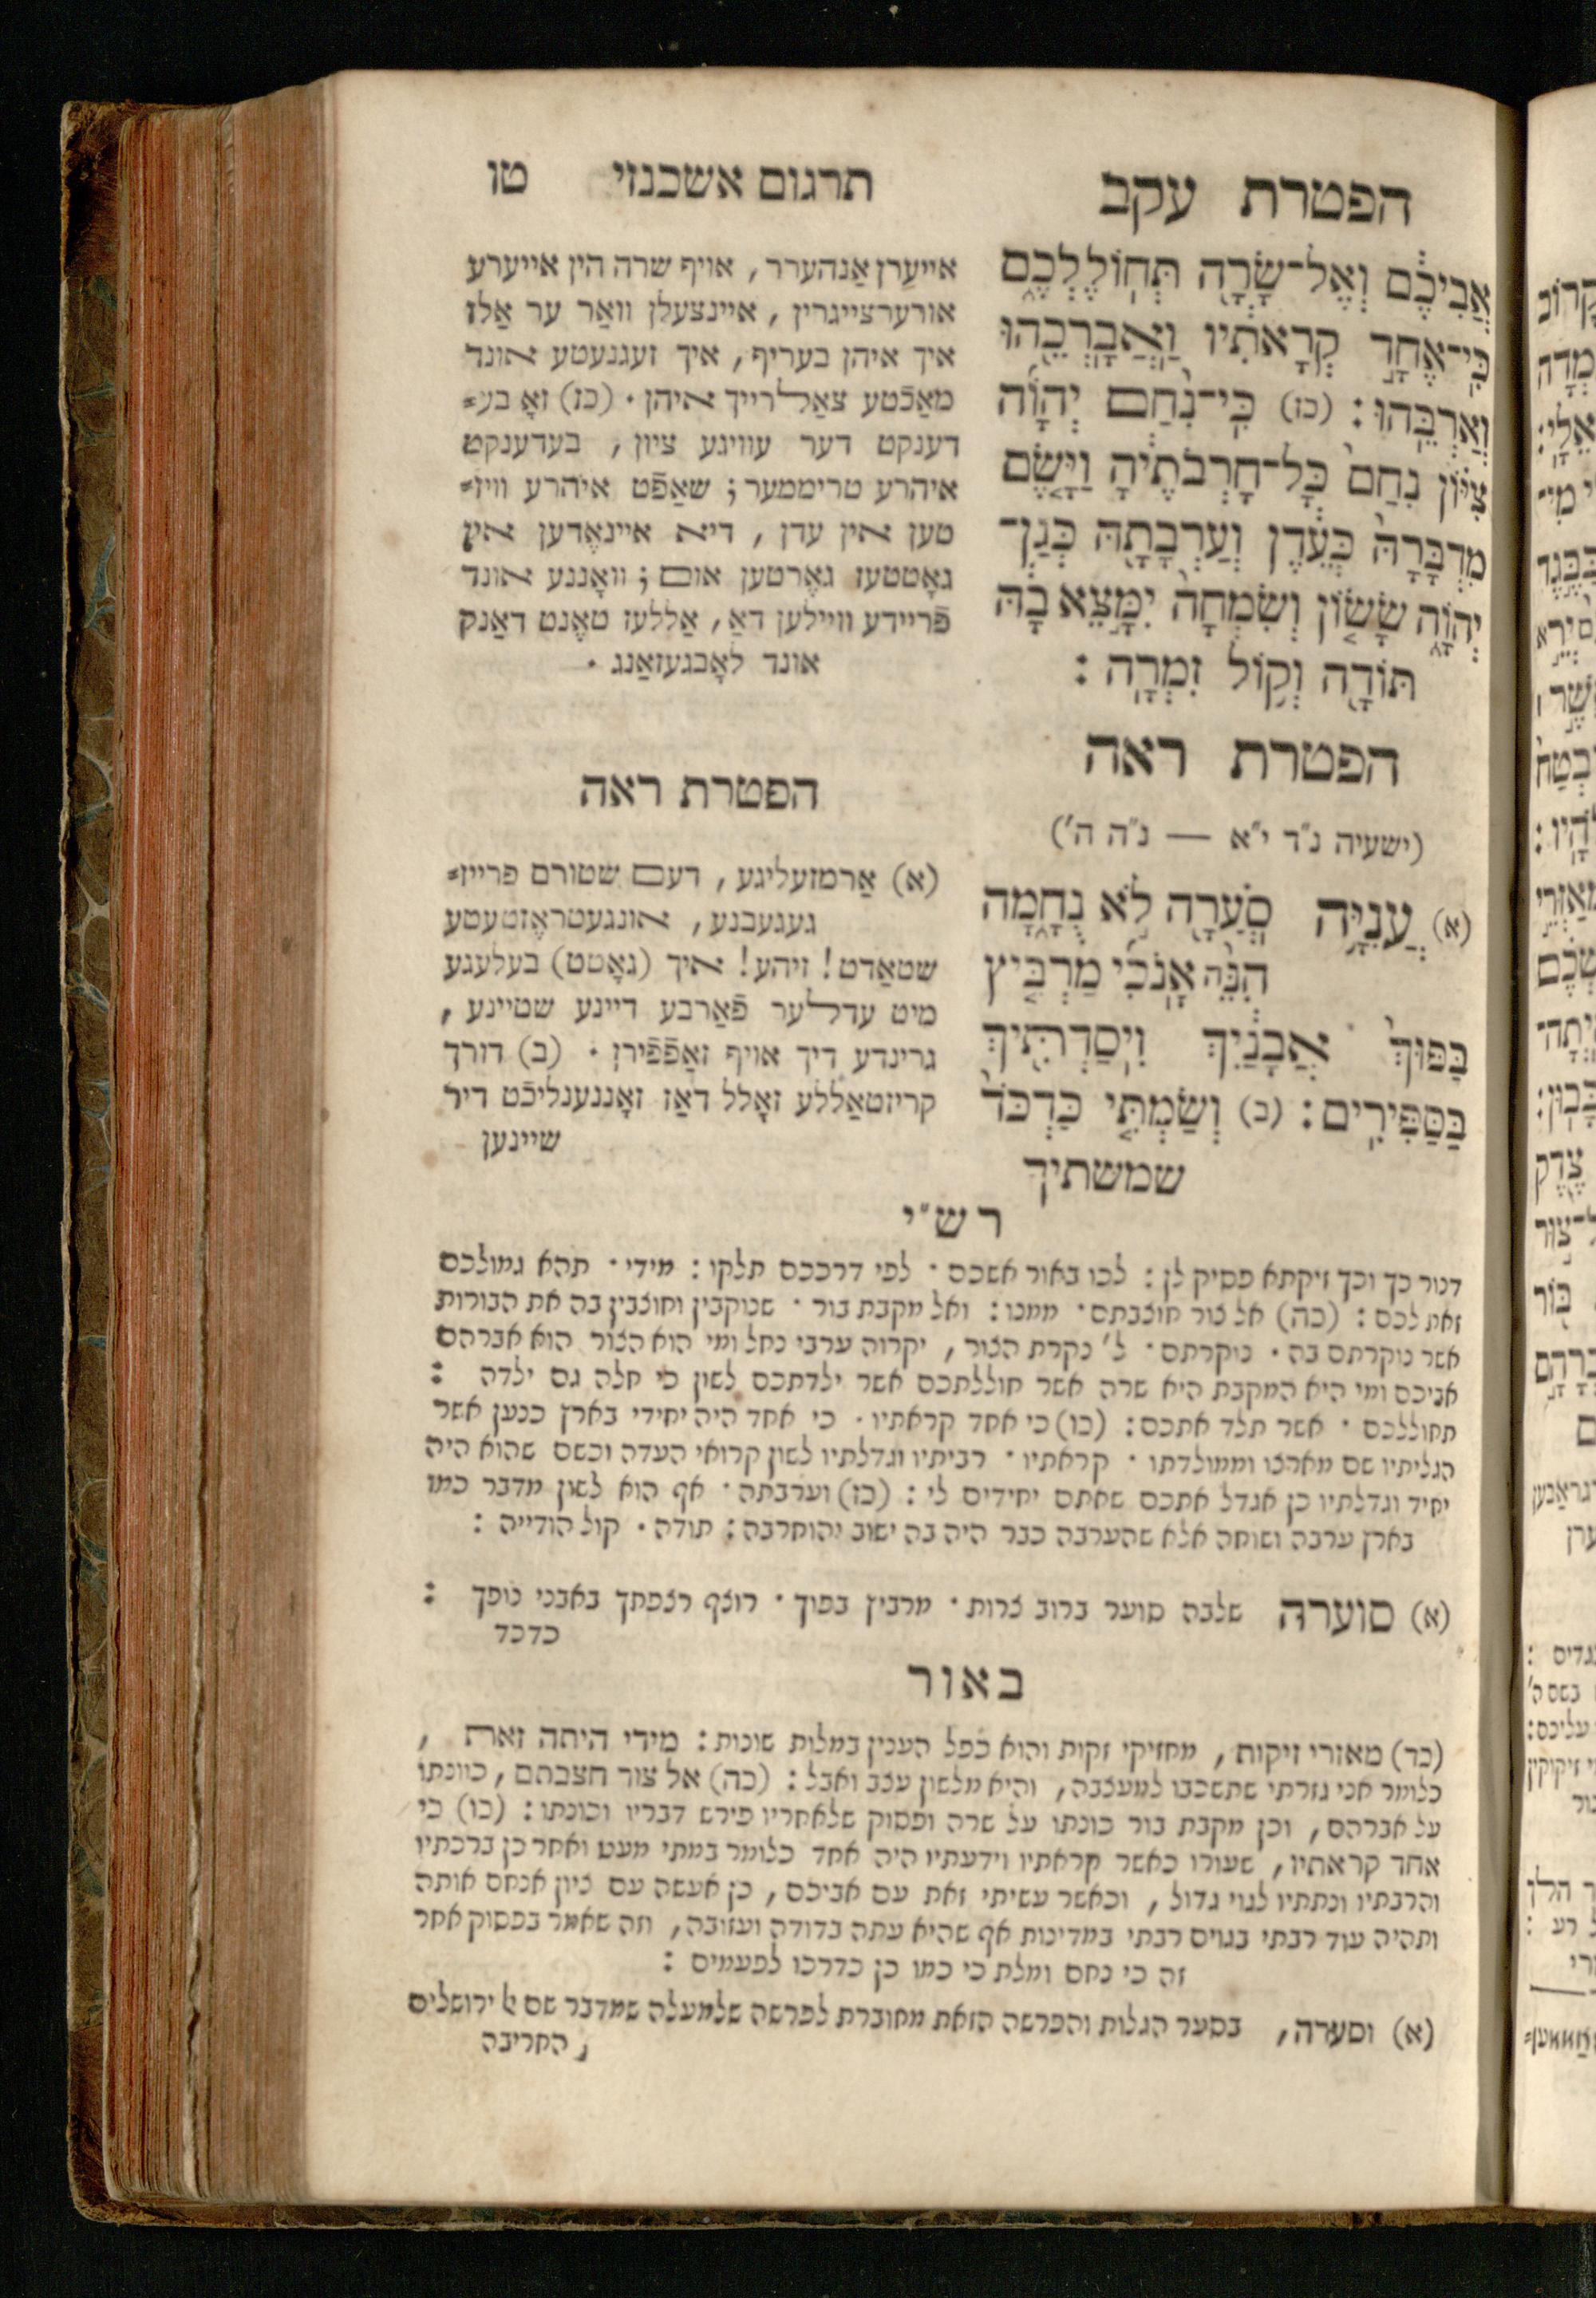 הפטרת עקב
אֲבִיכֶם וְאֶל־שָׂרָה תְּחוֹלֶלְכֶם
כִּי־אֶחָד קְרָאתִיו וַאֲבָרְכֵהוּ
וְאַרְבֵּהוּ : (כז) כִּי־נִחַם יְהוָה
צִיּוֹן נִחַם כָּל־חָרְבֹתֶיהָ וַיָּשֶׂם
מִדְבָּרָהּ כְּעֵדֶן וְעַרְבָתָהּ כְּגַן־
יְהוָה שָׂשׂוֹן וְשִׂמְחָה יִמָּצֵא בָהּ
תּוֹדָה וְקוֹל זִמְרָה :
הפטרת ראה
(ישעיה נ״ד י״א — נ״ה ה׳)
(א) עֲנִיָּה סֹעֲרָה לֹא נֻחָמָה
הִנֵּה אָנֹכִי מַרְבִּיץ
בַּפּוּךְ אֲבָנַיִךְ וִיסַדְתִּיךְ
בַּסַּפִּירִים : (ב) וְשַׂמְתִּי כַּדְכֹּד
שמשתיך
תרגום אשכנזי טו
אייערן אַנהערר, אויף שרה הין אייערע
אורערצייגרין, איינצעלן וואַר ער אַלז
איך איהן בעריף, איך זעגנעטע אונד
מאַכֿטע צאַלרייך איהן. (כז) זאָ בע=
דענקט דער עוויגע ציון, בעדענקט
איהרע טריממער; שאַפֿט איהרע וויז=
טען אין עדן, דיא איינאֶדען אין
גאָטטעז גאַרטען אום; וואָננע אונד
פֿריידע ווײלען דאַ, אַללעז טאֶנט דאַנק
אונד לאָבגעזאַנג.
הפטרת ראה
(א) אַרמזעליגע, דעם שטורם פרייז=
געגעבנע, אונגעטראֶזטעטע
שטאַדט! זיהע! איך (גאָטט) בעלעגע
מיט עדלער פֿאַרבע דיינע שטיינע,
גרינדע דיך אויף זאַפֿפֿירן. (ב) דורך
קריזטאַללע זאָלל דאַז זאָננענליכֿט דיר
שיינען
רש״י
דנור כך וכך זיקתא פסיק לן : לכו באור אשכם · לפי דרככם תלקו : מידי · תהא גמולכם
זאת לכם : (כה) אל צור חוצבתם · ממנו : ואל מקבת בור · שנוקבין וחוצבין בה את הבורות
אשר נוקרתם בה . נוקרתם · ל׳ נקרת הצור, יקרוה ערבי נחל ומי הוא הצור הוא אברהם
אביכם ומי היא המקבת היא שרה אשר חוללתכם אשר ילדתכם לשון כי חלה גם ילדה :
תחוללכם · אשר תלד אתכם : (כו) כי אחד קראתיו . כי אחד היה יחידי בארץ כנען אשר
הגליתיו שם מארצו וממולדתו · קראתיו · רביתיו וגדלתיו לשון קרואי העדה וכשם שהוא היה
יחיד וגדלתיו כן אגדל אתכם שאתם יחידים לי : (כז) וערבתה · אף הוא לשון מדבר כמו
בארץ ערבה ושוחה אלא שהערבה כבר היה בה ישוב והוחרבה : תודה . קול הודייה :
(א) סוערה שלבה סוער ברוב צרות · מרביץ בפוך · רוצף רצפתך באבני נופך :
כדכד
באור
(כד) מאזרי זיקות, מחזיקי זקות והוא כפל הענין במלות שונות : מידי היתה זאת,
כלומר אני גזרתי שתשכבו למעצבה, והיא מלשון עצב ואבל : (כה) אל צור חצבתם, כוונתו
על אברהם, וכן מקבת בור כונתו על שרה ופסוק שלאחריו פירש דבריו וכונתו : (כו) כי
אחד קראתיו, שעורו כאשר קראתיו וידעתיו היה אחד כלומר במתי מעט ואחר כן ברכתיו
והרבתיו ונתתיו לגוי גדול, וכאשר עשיתי זאת עם אביכם, כן אעשה עם ציון אנחם אותה
ותהיה עוד רבתי בגוים רבתי במדינות אף שהיא עתה בדודה ועזובה, וזה שאמר בפסוק אחר
זה כי נחם ומלת כי כמו כן כדרכו לפעמים :
(א) וסערה, בסער הגלות והפרשה הזאת מחוברת לפרשה שלמעלה שמדבר שם ירושלים
החריבה